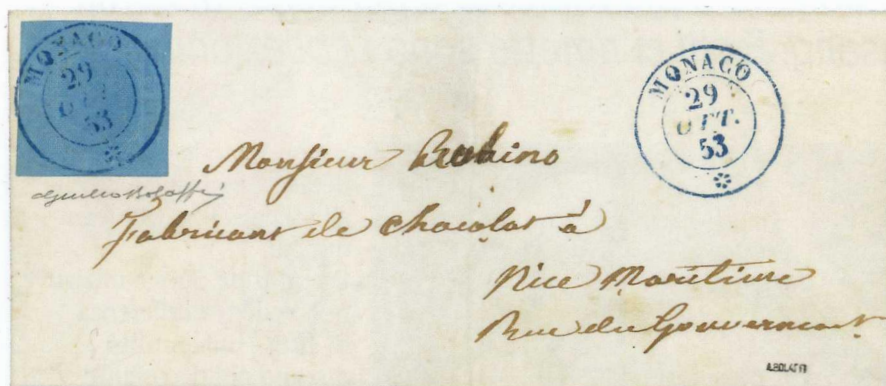 MONACO
29
53
MONACO
29
OTT.
53
Monsieur Rubino
Fabricant de chocolat à
Nice Maritime
Rue du Gouvernement
A.BOLAFFI